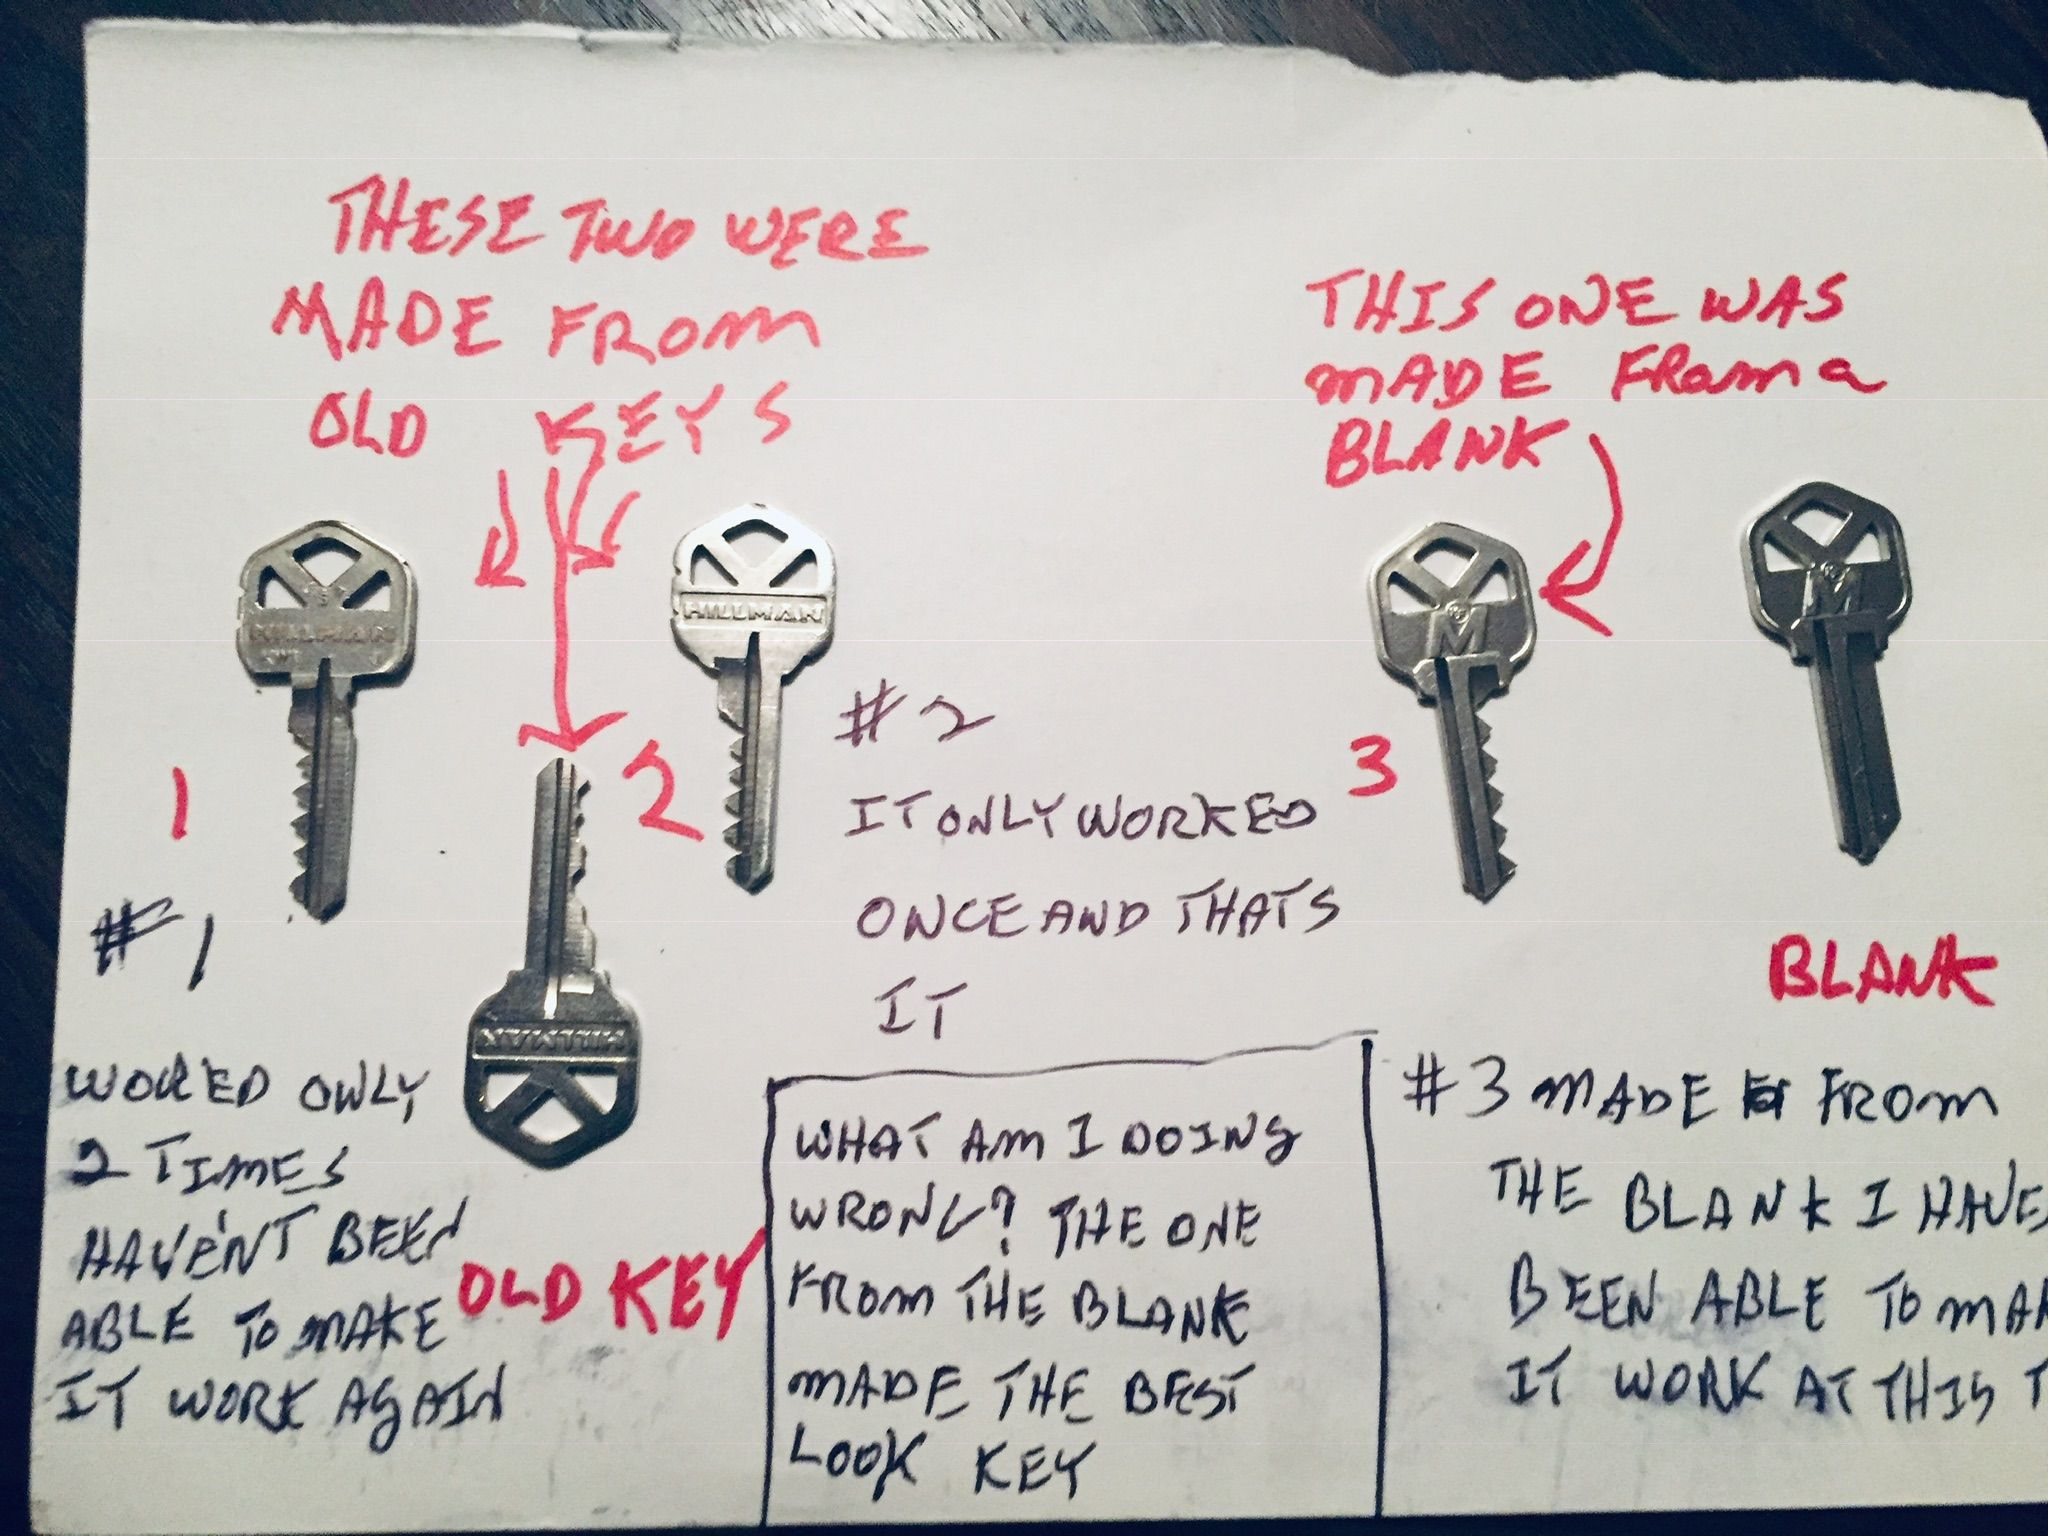 THESE TWO WERE
MADE FROM
OLD KEYS
THIS ONE WAS
MADE FROM a
BLANK
HILLMAN
HILLMAN
M
M
1
2
3
#2
IT ONLY WORKED
ONCE AND THATS
IT
#1
WORED ONLY
2 TIMES
HAVEN'T BEEN
ABLE TO MAKE
IT WORK AGAIN
HILLMAN
OLD KEY
WHAT AM I DOING
WRONG? THE ONE
FROM THE BLANK
MADE THE BEST
LOOK KEY
BLANK
#3 MADE FROM
THE BLANK I HAVE
BEEN ABLE TO MAK
IT WORK AT THIS T